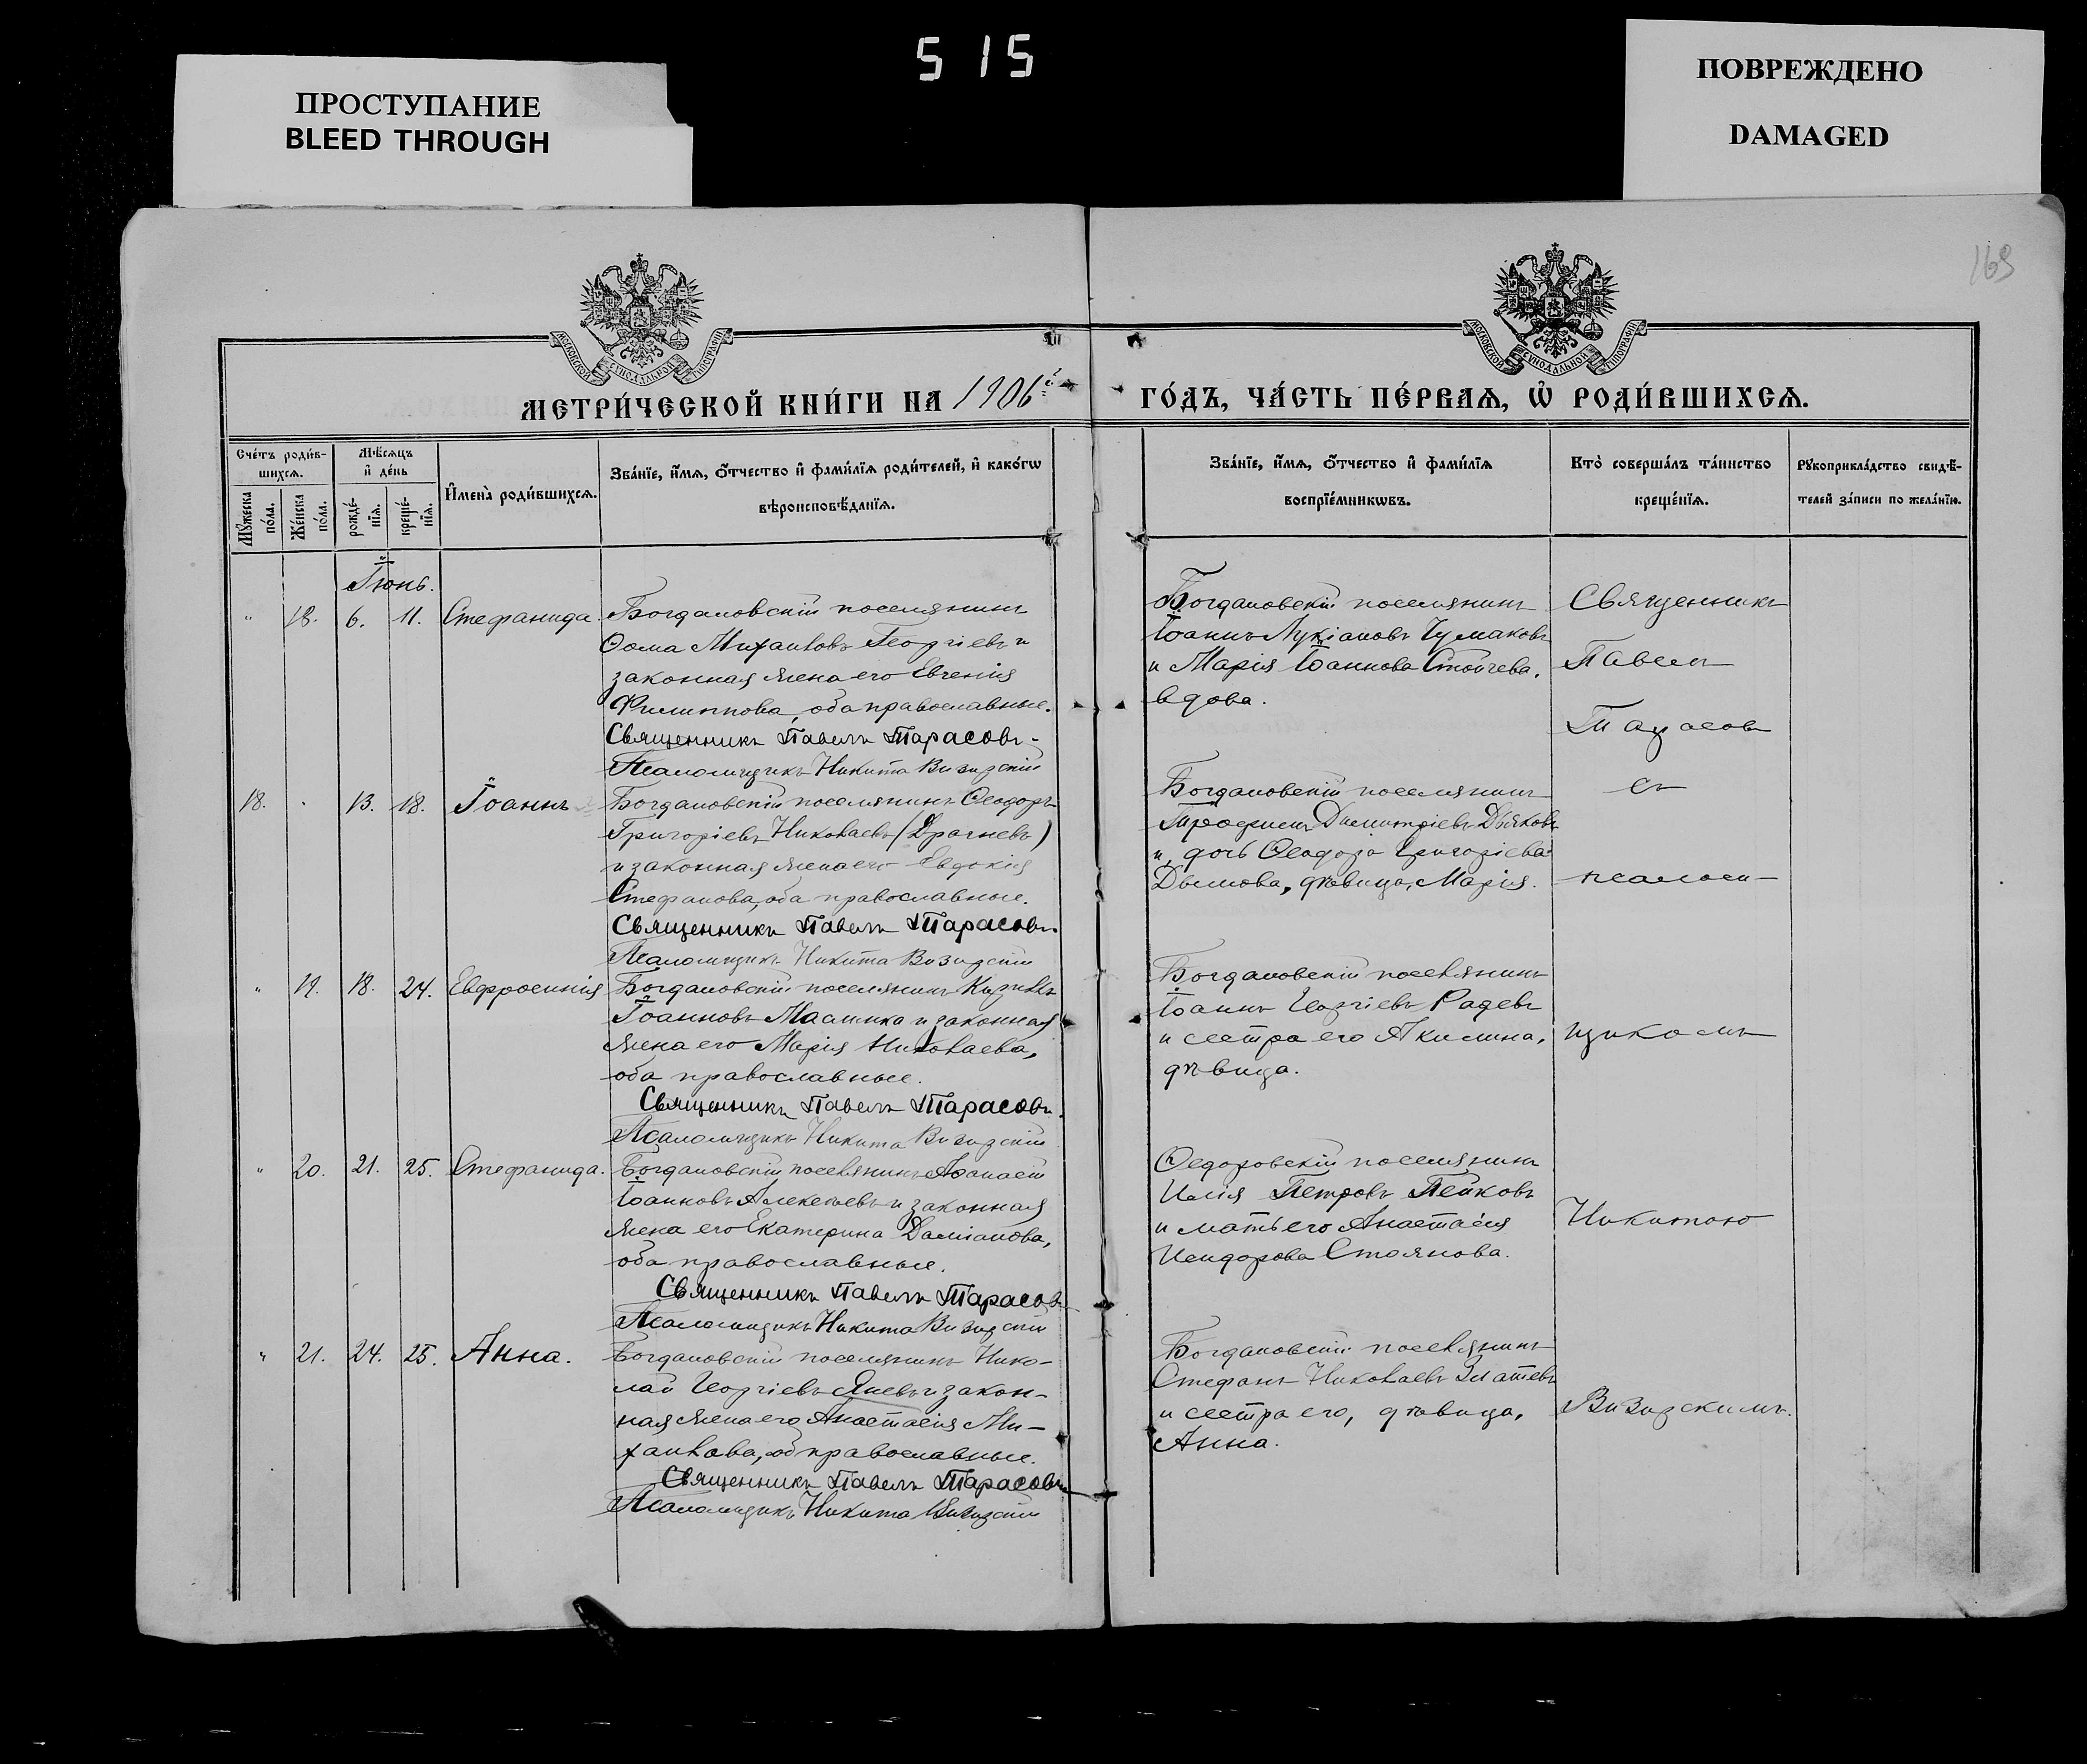 515
ПРОСТУПАНИЕ
BLEED THROUGH
ПОВРЕЖДЕНО
DAMAGED
169
МОСКОВСКОЙ СѴНОДАЛЬНОЙ ТИПОГРАФІИ
МОСКОВСКОЙ СѴНОДАЛЬНОЙ ТИПОГРАФІИ
МЕТРИ́ЧЕСКОЙ КНИ́ГИ НА 1906й
ГО́ДЪ, ЧА́СТЬ ПЕ́РВАѦ, Ѡ҆ РОДИ́ВШИХСѦ.
Сче́тъ роди́в-
шихсѧ.
Мꙋ́жеска по́ла.
Же́нска по́ла.
Мѣ́сѧцъ
и҆ де́нь
рожде́-
нїѧ.
креще́-
нїѧ.
И҆мена̀ роди́вшихсѧ.
Зва́нїе, и҆́мѧ, ѻ҆́тчество и҆ фами́лїѧ роди́телей, и҆ како́гѡ
вѣроисповѣ́данїѧ.
Зва́нїе, и҆́мѧ, ѻ҆́тчество и҆ фами́лїѧ
воспрїе́мникѡвъ.
Кто̀ соверша́лъ та́инство
креще́нїѧ.
Рꙋкоприкла́дство свидѣ́-
телей за́писи по жела́нїю.
Іюнь.
" 18. 6. 11. Стефанида.
Богдановскій поселянинъ
Ѳома Михаиловъ Георгіевъ и
законная жена его Евгенія
Филиппова, оба православные.
Священникъ Павелъ Тарасовъ
Псаломщикъ Никита Визирскій
Богдановскій поселянинъ
Іоаннъ Лукіановъ Чумаковъ
и Марія Іоаннова Стойчева,
вдова.
18. " 13. 18. Іоаннъ
Богдановскій поселянинъ Ѳеодоръ
Григоріевъ Николаевъ (Драгневъ)
и законная жена его Евдокія
Стефанова, оба православные.
Священникъ Павелъ Тарасовъ.
Псаломщикъ Никита Визирскій
Богдановскій поселянинъ
Трофимъ Димитріевъ Дьяковъ
и дочь Ѳеодора Григоріева
Дымова, дѣвица, Марія.
" 19. 18. 24. Евфросинія
Богдановскій поселянинъ Кириллъ
Іоанновъ Маслинка и законная
жена его Марія Николаева,
оба православные.
Священникъ Павелъ Тарасовъ.
Псаломщикъ Никита Визирскій
Богдановскій поселянинъ
Іоаннъ Георгіевъ Радевъ
и сестра его Акилина,
дѣвица.
" 20. 21. 25. Стефанида.
Богдановскій поселянинъ Аѳанасій
Іоанновъ Алексѣевъ и законная
жена его Екатерина Даміанова,
оба православные.
Священникъ Павелъ Тарасовъ
Псаломщикъ Никита Визирскій
Ѳедоровскій поселянинъ
Илія Петровъ Пейковъ
и мать его Анастасія
Исидорова Стоянова.
" 21. 24. 25. Анна.
Богдановскій поселянинъ Нико-
лай Георгіевъ Яневъ и закон-
ная жена его Анастасія Ми-
хаилова, оба православные.
Священникъ Павелъ Тарасовъ
Псаломщикъ Никита Визирскій
Богдановскій поселянинъ
Стефанъ Николаевъ Златевъ
и сестра его, дѣвица,
Анна.
Священникъ
Павелъ
Тарасовъ
съ
псалом-
щикомъ
Никитою
Визирскимъ.